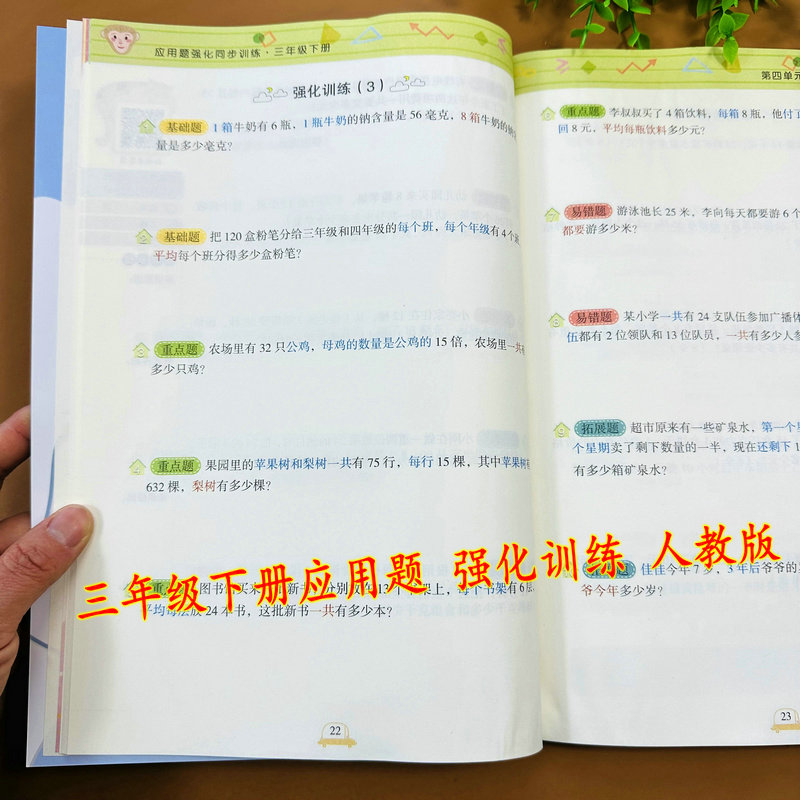 应用题强化同步训练·三年级下册
强化训练（3）
基础题 1箱牛奶有6瓶，1瓶牛奶的钠含量是56毫克，8箱牛奶的钠
量是多少毫克？
基础题 把120盒粉笔分给三年级和四年级的每个班，每个年级有4个
平均每个班分得多少盒粉笔？
重点题 农场里有32只公鸡，母鸡的数量是公鸡的15倍，农场里一共
多少只鸡？
重点题 果园里的苹果树和梨树一共有75行，每行15棵，其中苹果树
632棵，梨树有多少棵？
图书 买来 新 分别放在13个 架上，每个书架有6层
平均每层放24本书，这批新书一共有多少本？
22
第四单元
重点题 李叔叔买了4箱饮料，每箱8瓶，他付了
回8元，平均每瓶饮料多少元？
易错题 游泳池长25米，李向每天都要游6个
都要游多少米？
易错题 某小学一共有24支队伍参加广播体
伍都有2位领队和13位队员，一共有多少人参
拓展题 超市原来有一些矿泉水，第一个星
个星期卖了剩下数量的一半，现在还剩下1
有多少箱矿泉水？
佳佳今年7岁，3年后爷爷的
爷今年多少岁？
23
三年级下册应用题 强化训练 人教版